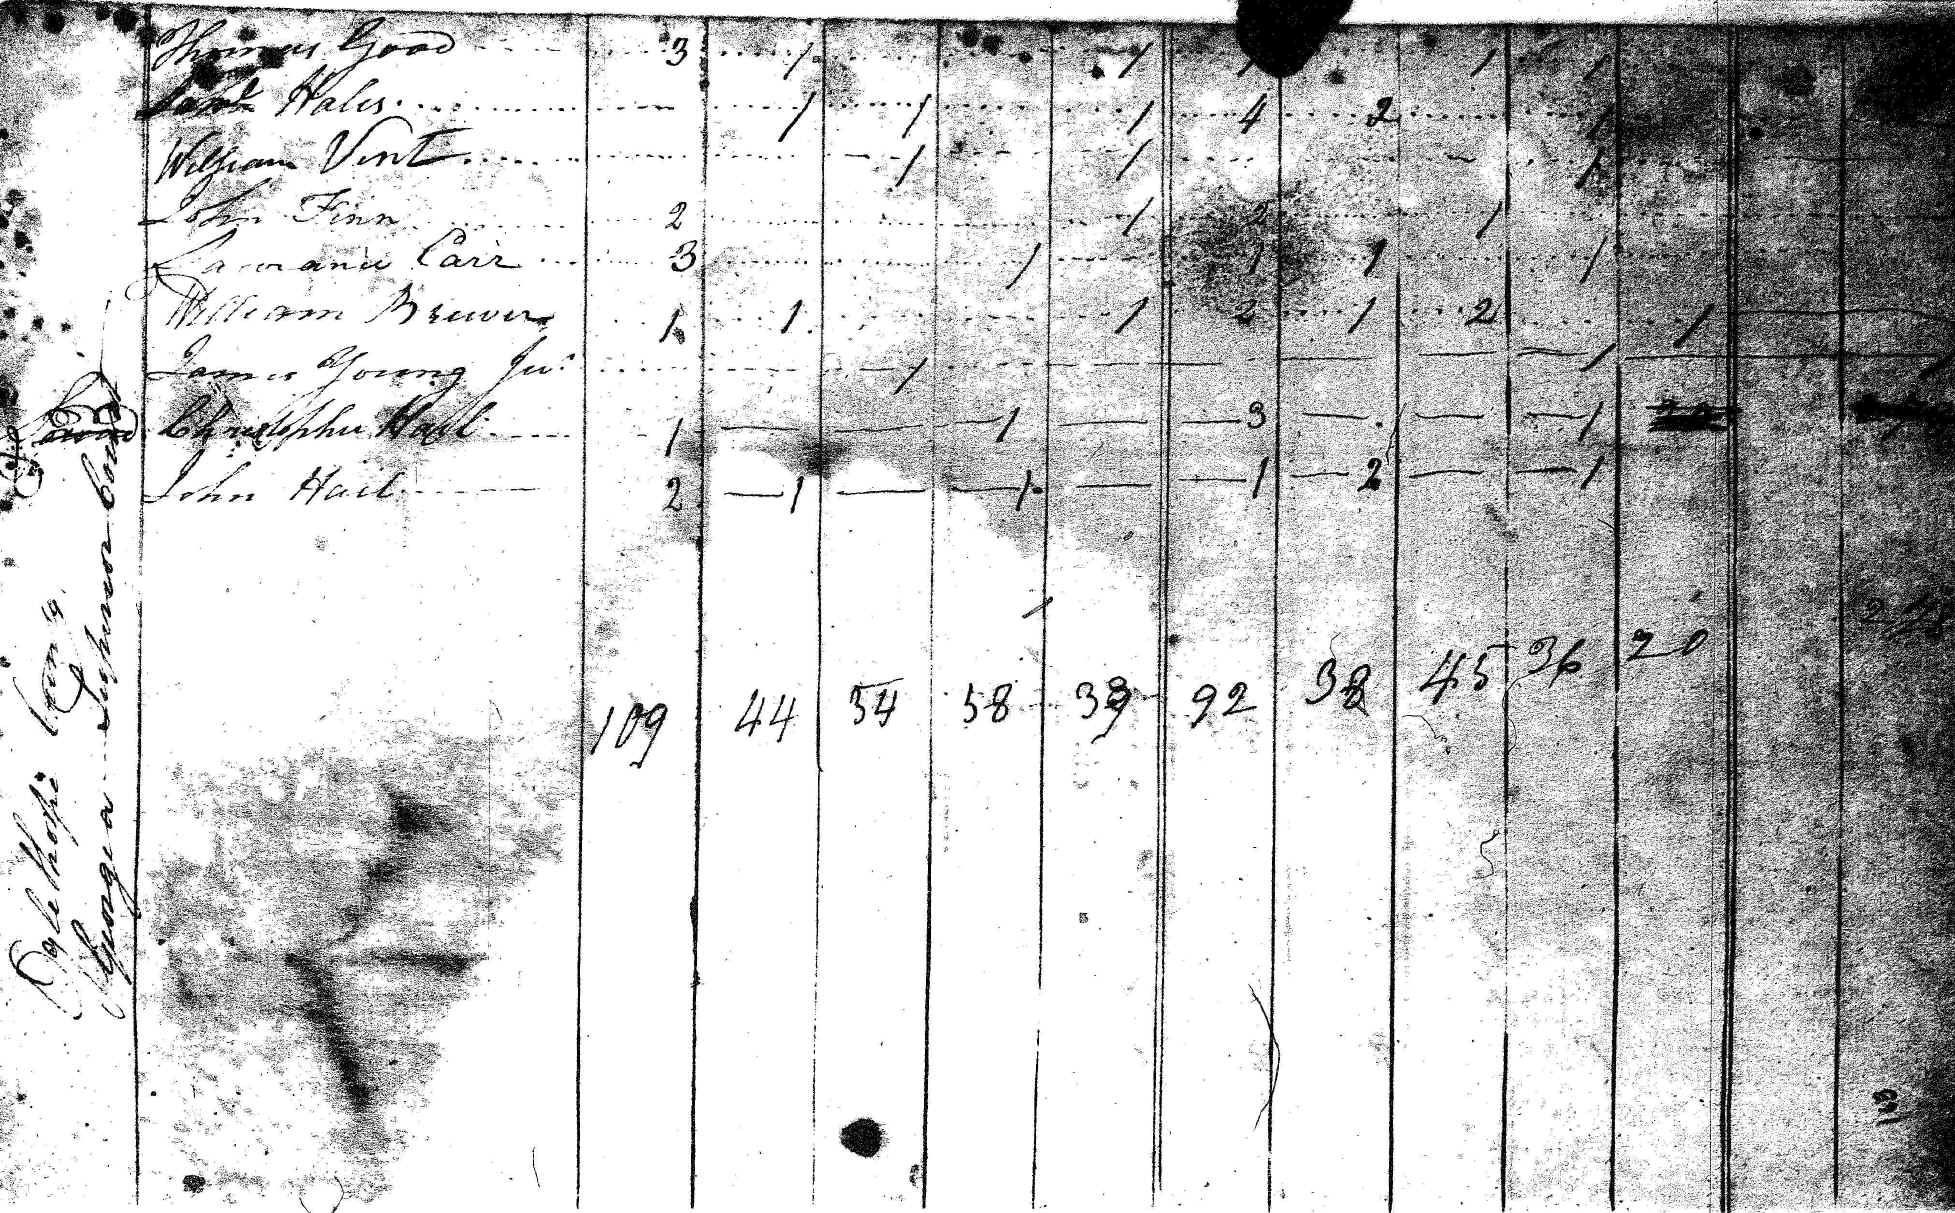 Thomas Good 3 1 1 1 1 1
Hales 1 1 1 4 2 1
William Vent 1 1 1
John Finn 2 1 2 1
Lawrance Carr 3 1 1 1 1
William Brewer 1 1 1 2 1 2 1
James Young Jur 1 1 1
Christopher Hail 1 1 3 1
John Hail 2 1 1 1 2 1
109 44 54 58 39 92 38 45 36 20
Oglethorpe
Georgia